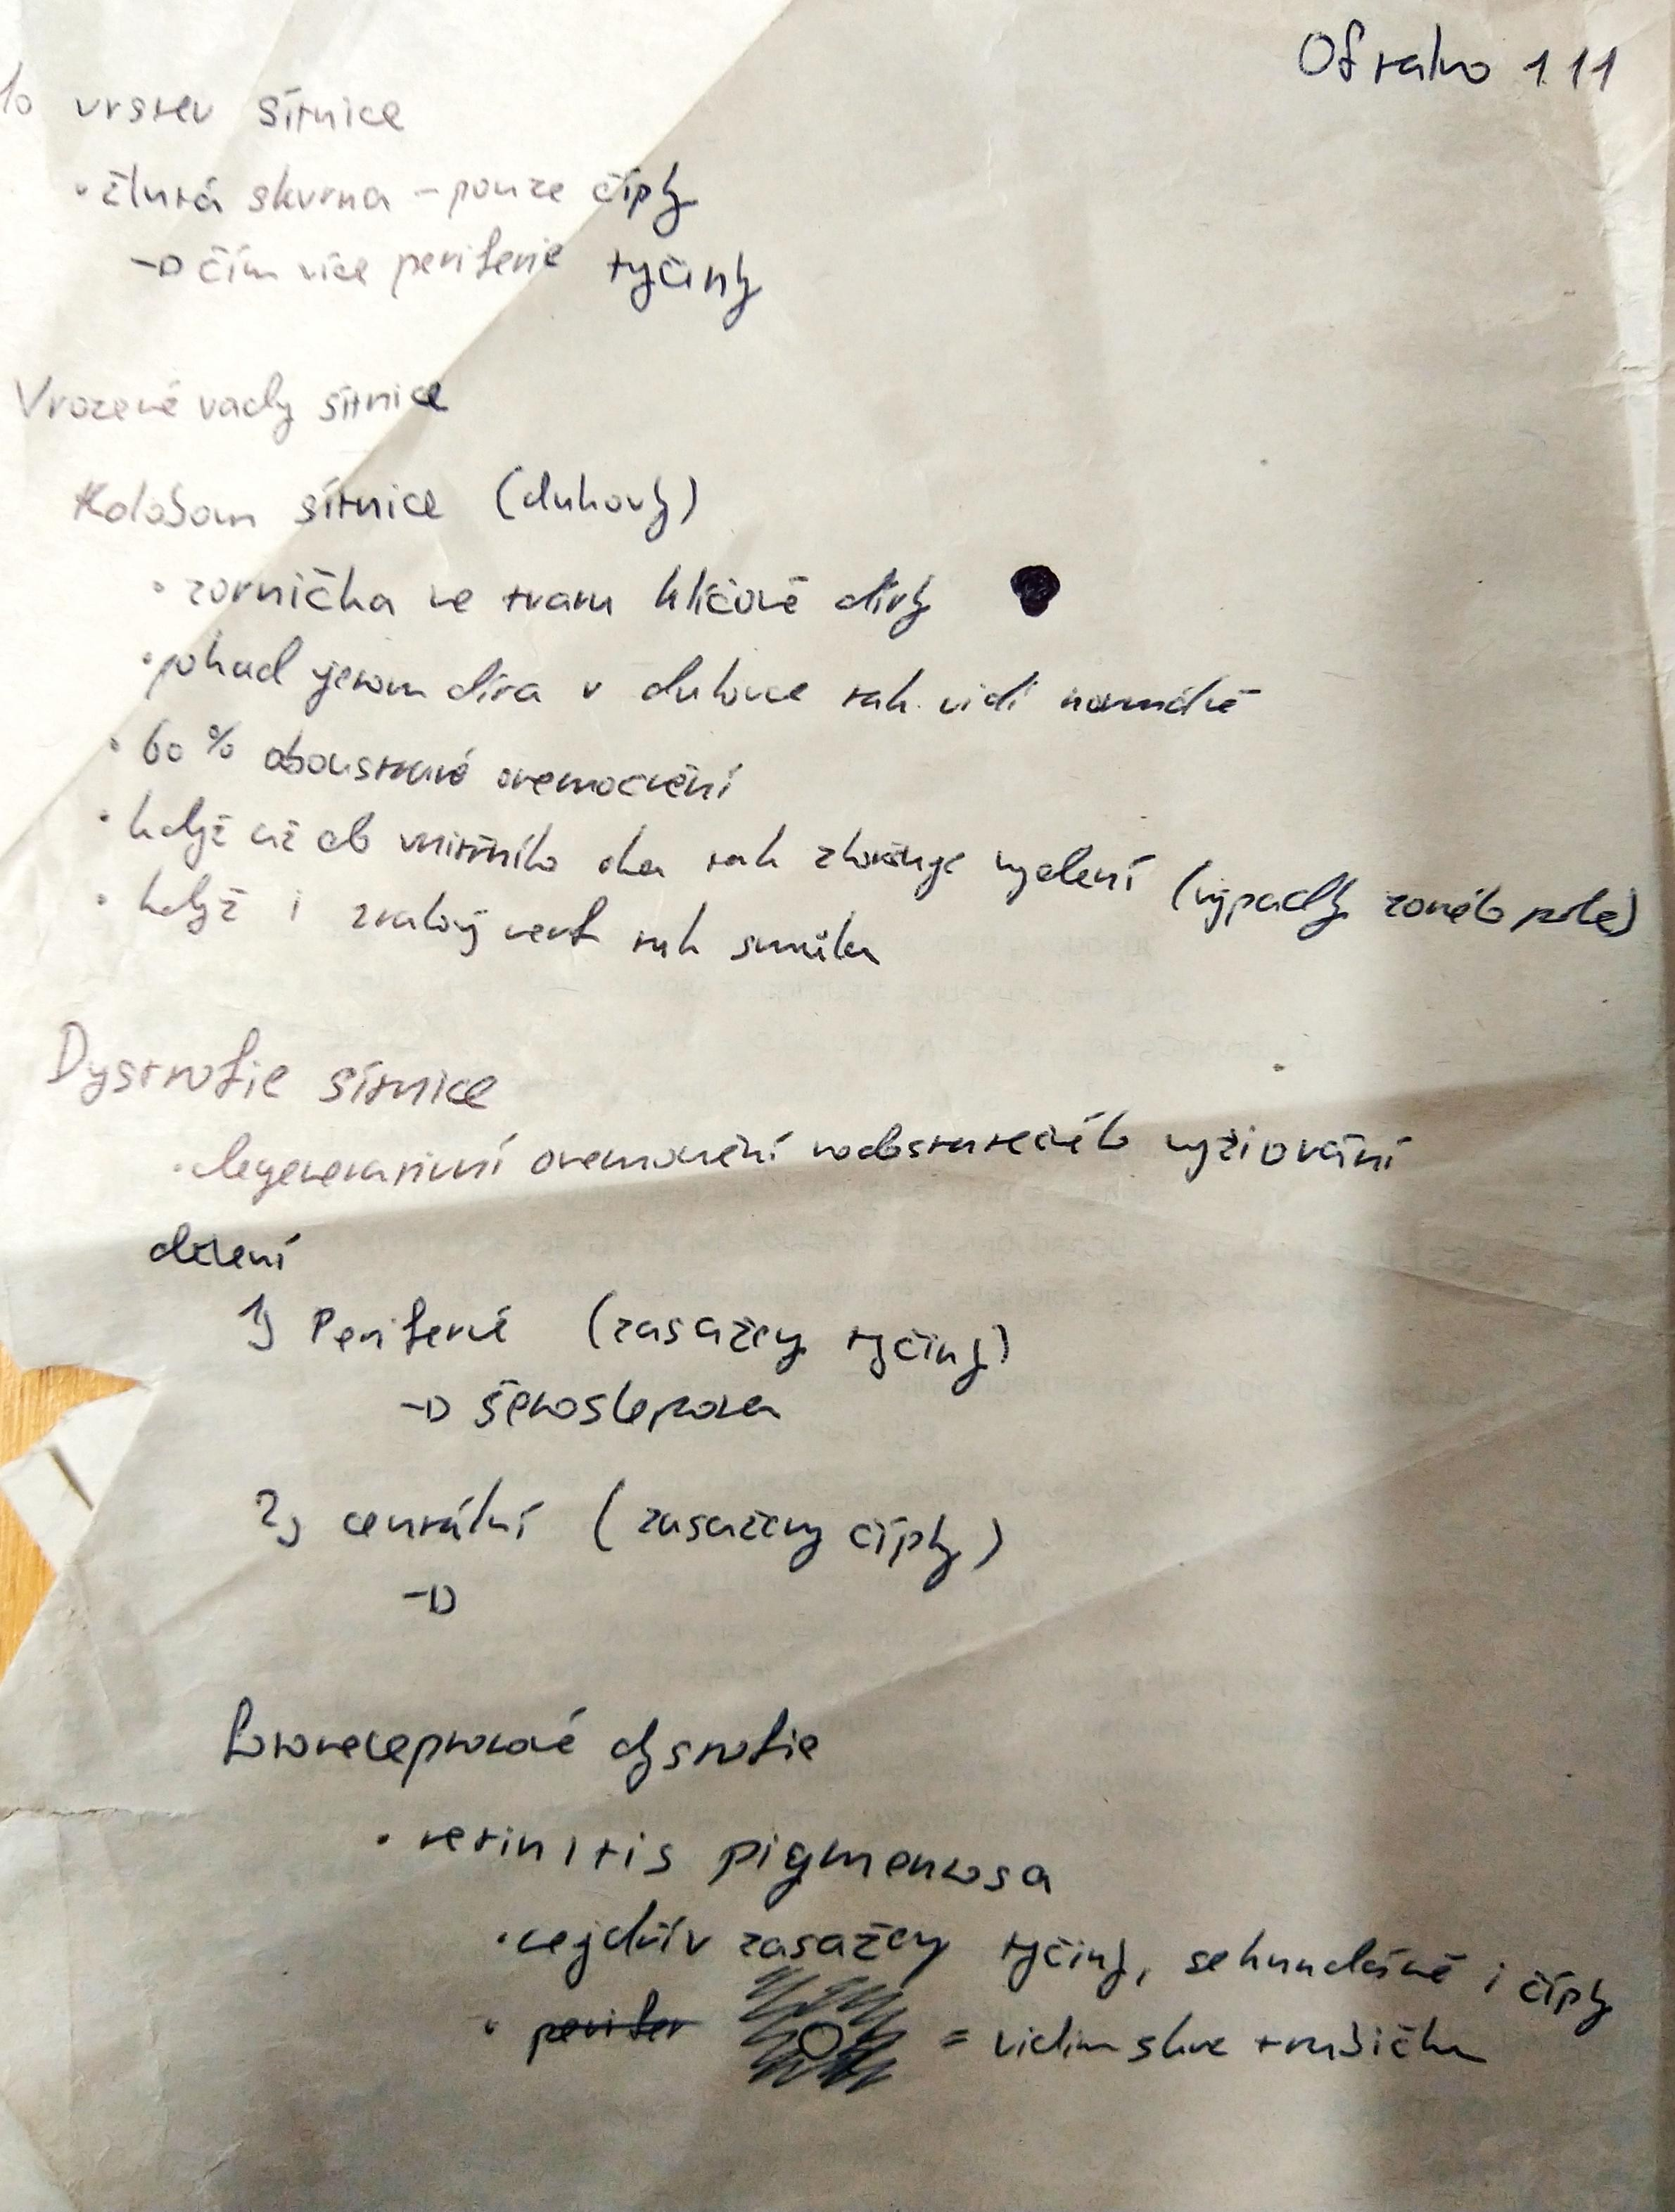 Oftalmo 1.11
10 vrstev sítnice
• žlutá skvrna – pouze čípky
→ čím více periferie tyčinky
Vrozené vady sítnice
Kolobom sítnice (duhovky)
• zornička ve tvaru klíčové dírky
• pokud jenom díra v duhovce tak vidí normálně
• 60 % oboustrané onemocnění
• když už do vnitřního oka tak zhoršuje vydění (výpadky zorného pole)
• když i zrakový nerv tak
Dystrofie sítnice
• degenerativní onemocnění nedostatečného vyživování
dělení
1) Periferné (zasaženy tyčinky)
→ šeroslepota
2) centrální (zasaženy čípky)
→
fotoreceptorové dystrofie
• retinitis pigmentosa
• nejdřív zasaženy tyčinky, sekundárně i čípky
• perifer = vidim skrz trubičku